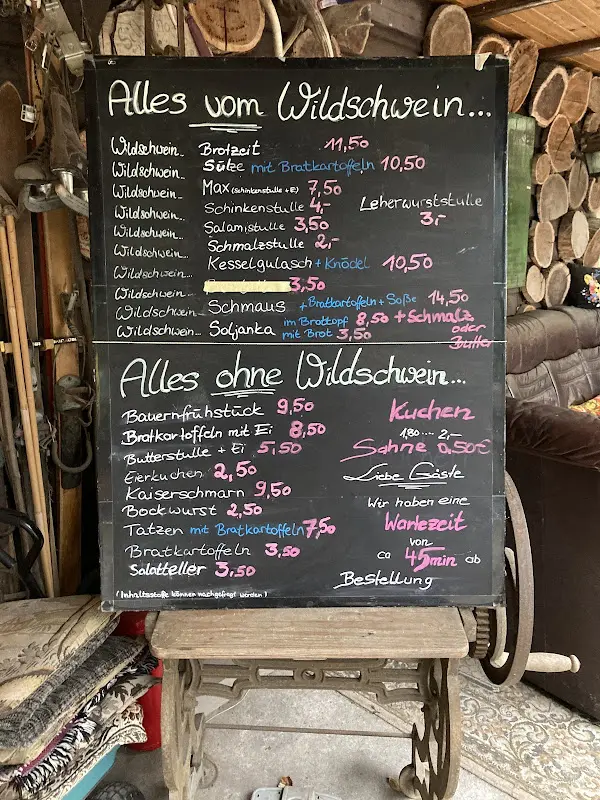 Alles vom Wildschwein...
Wildschwein... Brotzeit 11,50
Wildschwein... Sülze mit Bratkartoffeln 10,50
Wildschwein... Max (Schinkenstulle + Ei) 7,50
Wildschwein... Schinkenstulle 4,-
Leberwurststulle 3,-
Wildschwein... Salamistulle 3,50
Wildschwein... Schmalzstulle 2,-
Wildschwein... Kesselgulasch + Knödel 10,50
Wildschwein... 3,50
Wildschwein... Schmaus + Bratkartoffeln + Soße 14,50
Wildschwein... Soljanka im Brottopf 8,50 + Schmalz oder Butter
mit Brot 3,50
Alles ohne Wildschwein...
Bauernfrühstück 9,50
Bratkartoffeln mit Ei 8,50
Butterstulle + Ei 5,50
Eierkuchen 2,50
Kaiserschmarn 9,50
Bockwurst 2,50
Tatzen mit Bratkartoffeln 7,50
Bratkartoffeln 3,50
Salatteller 3,50
(Inhaltsstoffe können nachgefragt werden)
Kuchen
1,80 .... 2,-
Sahne 0,50€
Liebe Gäste
Wir haben eine
Wartezeit
von
ca 45min ab
Bestellung